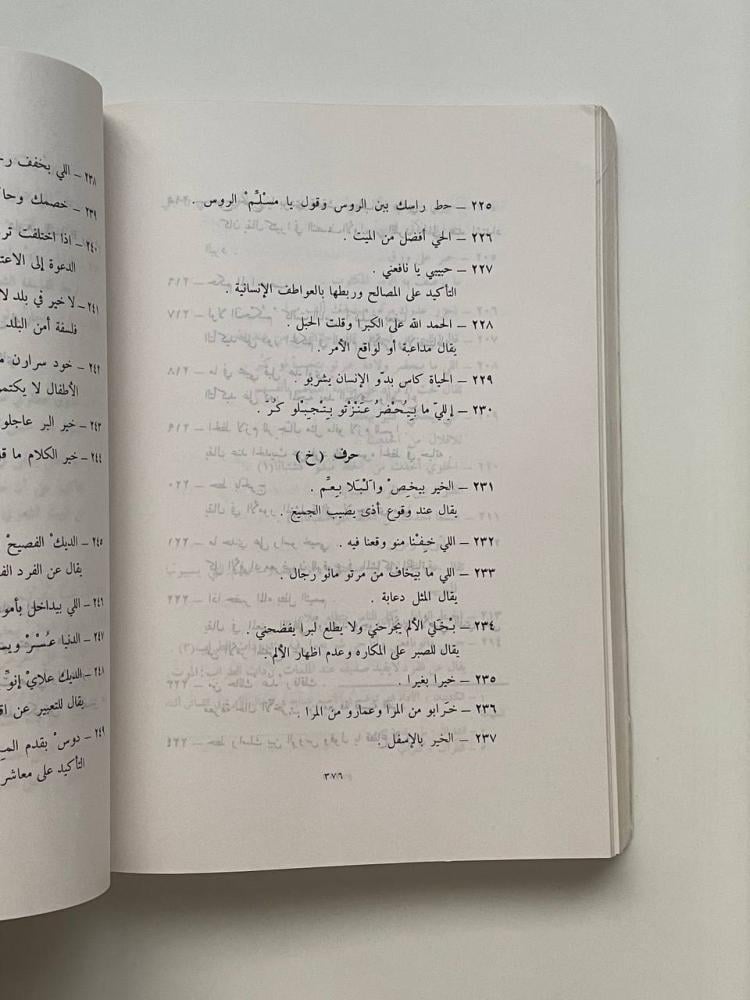 ٢٢٥ – حط راسك بين الروس وقول يا مسْلِّمْ الروس .
٢٢٦ – الحي أفضل من الميت .
٢٢٧ – حبيبي يا نافعني .
التأكيد على المصالح وربطها بالعواطف الإنسانية .
٢٢٨ – الحمد الله على الكبرا وقلت الخيل .
يقال مداعبة أو لواقع الأمر .
٢٢٩ – الحياة كاس بدّو الإنسان يشربو .
٢٣٠ – إللي ما بِيُحْضُرْ عَنْزْتو بتجيبْلو كُرّ .
حرف (خ)
٢٣١ – الخير بيخِصْ والْبَلا بِعِمّ .
يقال عند وقوع أذى يصيب الجميع .
٢٣٢ – اللي خِفْنا منو وقعنا فيه .
٢٣٣ – اللي ما بيخاف من مرتو مانو رجال .
يقال المثل دعابة .
٢٣٤ – بْخَلّي الألم يجرحني ولا يطلع لبرا يفضحني .
يقال للصبر على المكاره وعدم اظهار الألم .
٢٣٥ – خيرا بغيرا .
٢٣٦ – خرابو من المرا وعمارو من المرا .
٢٣٧ – الخير بالإسفل .
٣٧٦
٢٣٨ – اللي بخفف
٢٣٩ – خصمك
٢٤٠ – اذا اختلفت
الدعوة إلى
٢٤١ – لا خير في بلد
فلسفة أمن البلد
٢٤٢ – خود سرارن
الأطفال لا
٢٤٣ – خير البر عاجلو
٢٤٤ – خير الكلام ما
٢٤٥ – الديكْ الفصيحْ
يقال عن الفرد
٢٤٦ – اللي بيداخل
٢٤٧ – الدنيا عُسْرْ
الديك علايْ إنوِّ
يقال للتعبير عن
٢٤٩ – دوسْ بقدم
التأكيد على